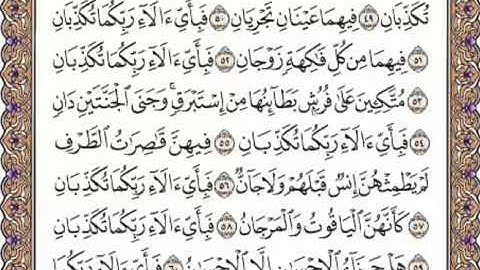 تُكَذِّبَانِ ٤٩ فِيهِمَا عَيْنَانِ تَجْرِيَانِ ٥٠ فَبِأَيِّ ءَالَآءِ رَبِّكُمَا تُكَذِّبَانِ
٥١ فِيهِمَا مِن كُلِّ فَٰكِهَةٍ زَوْجَانِ ٥٢ فَبِأَيِّ ءَالَآءِ رَبِّكُمَا تُكَذِّبَانِ
٥٣ مُتَّكِـِٔينَ عَلَىٰ فُرُشٍۭ بَطَآئِنُهَا مِنْ إِسْتَبْرَقٍۚ وَجَنَى ٱلْجَنَّتَيْنِ دَانٍ
٥٤ فَبِأَيِّ ءَالَآءِ رَبِّكُمَا تُكَذِّبَانِ ٥٥ فِيهِنَّ قَٰصِرَٰتُ ٱلطَّرْفِ
لَمْ يَطْمِثْهُنَّ إِنسٌ قَبْلَهُمْ وَلَا جَآنٌّ ٥٦ فَبِأَيِّ ءَالَآءِ رَبِّكُمَا تُكَذِّبَانِ
٥٧ كَأَنَّهُنَّ ٱلْيَاقُوتُ وَٱلْمَرْجَانُ ٥٨ فَبِأَيِّ ءَالَآءِ رَبِّكُمَا تُكَذِّبَانِ
٥٩ هَلْ جَزَآءُ ٱلْإِحْسَٰنِ إِلَّا ٱلْإِحْسَٰنُ ٦٠ فَبِأَيِّ ءَالَآءِ رَبِّكُمَا